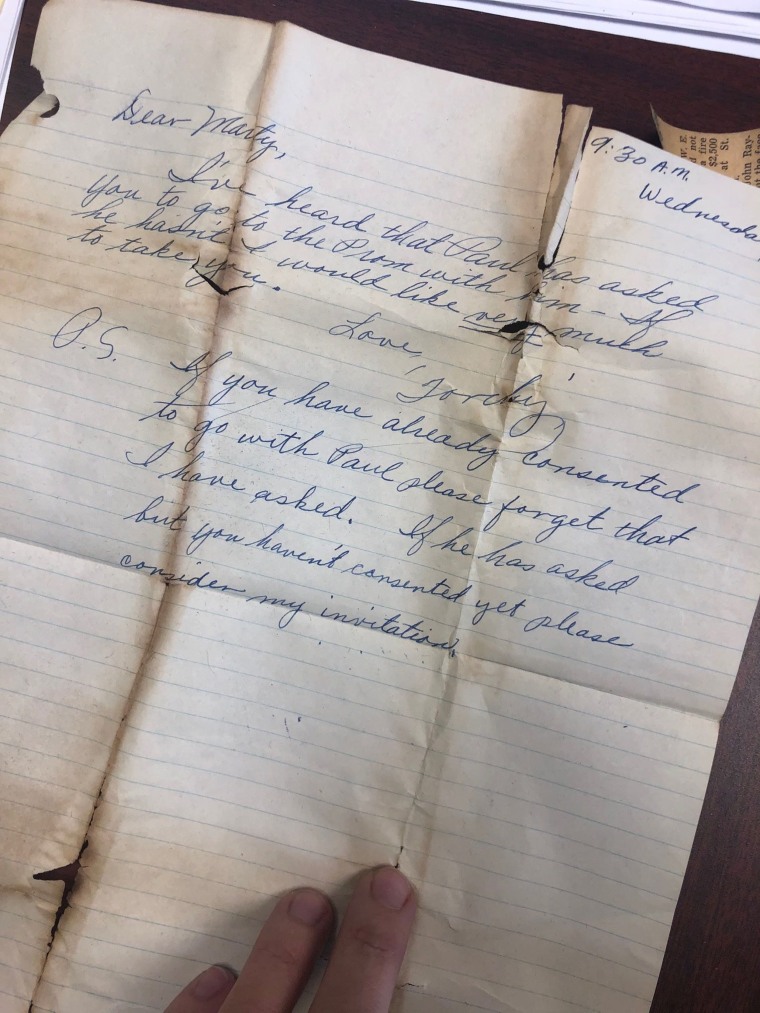 9:30 A.M.
Wednesda
Dear Marty,
I've heard that Paul has asked
you to go to the Prom with him - If
he hasn't I would like very much
to take you.
Love,
Torchy
P.S. If you have already consented
to go with Paul please forget that
I have asked. If he has asked
but you haven't consented yet please
consider my invitation.
W. E.
d not
a fire
$2,500
at St.
John Ray-